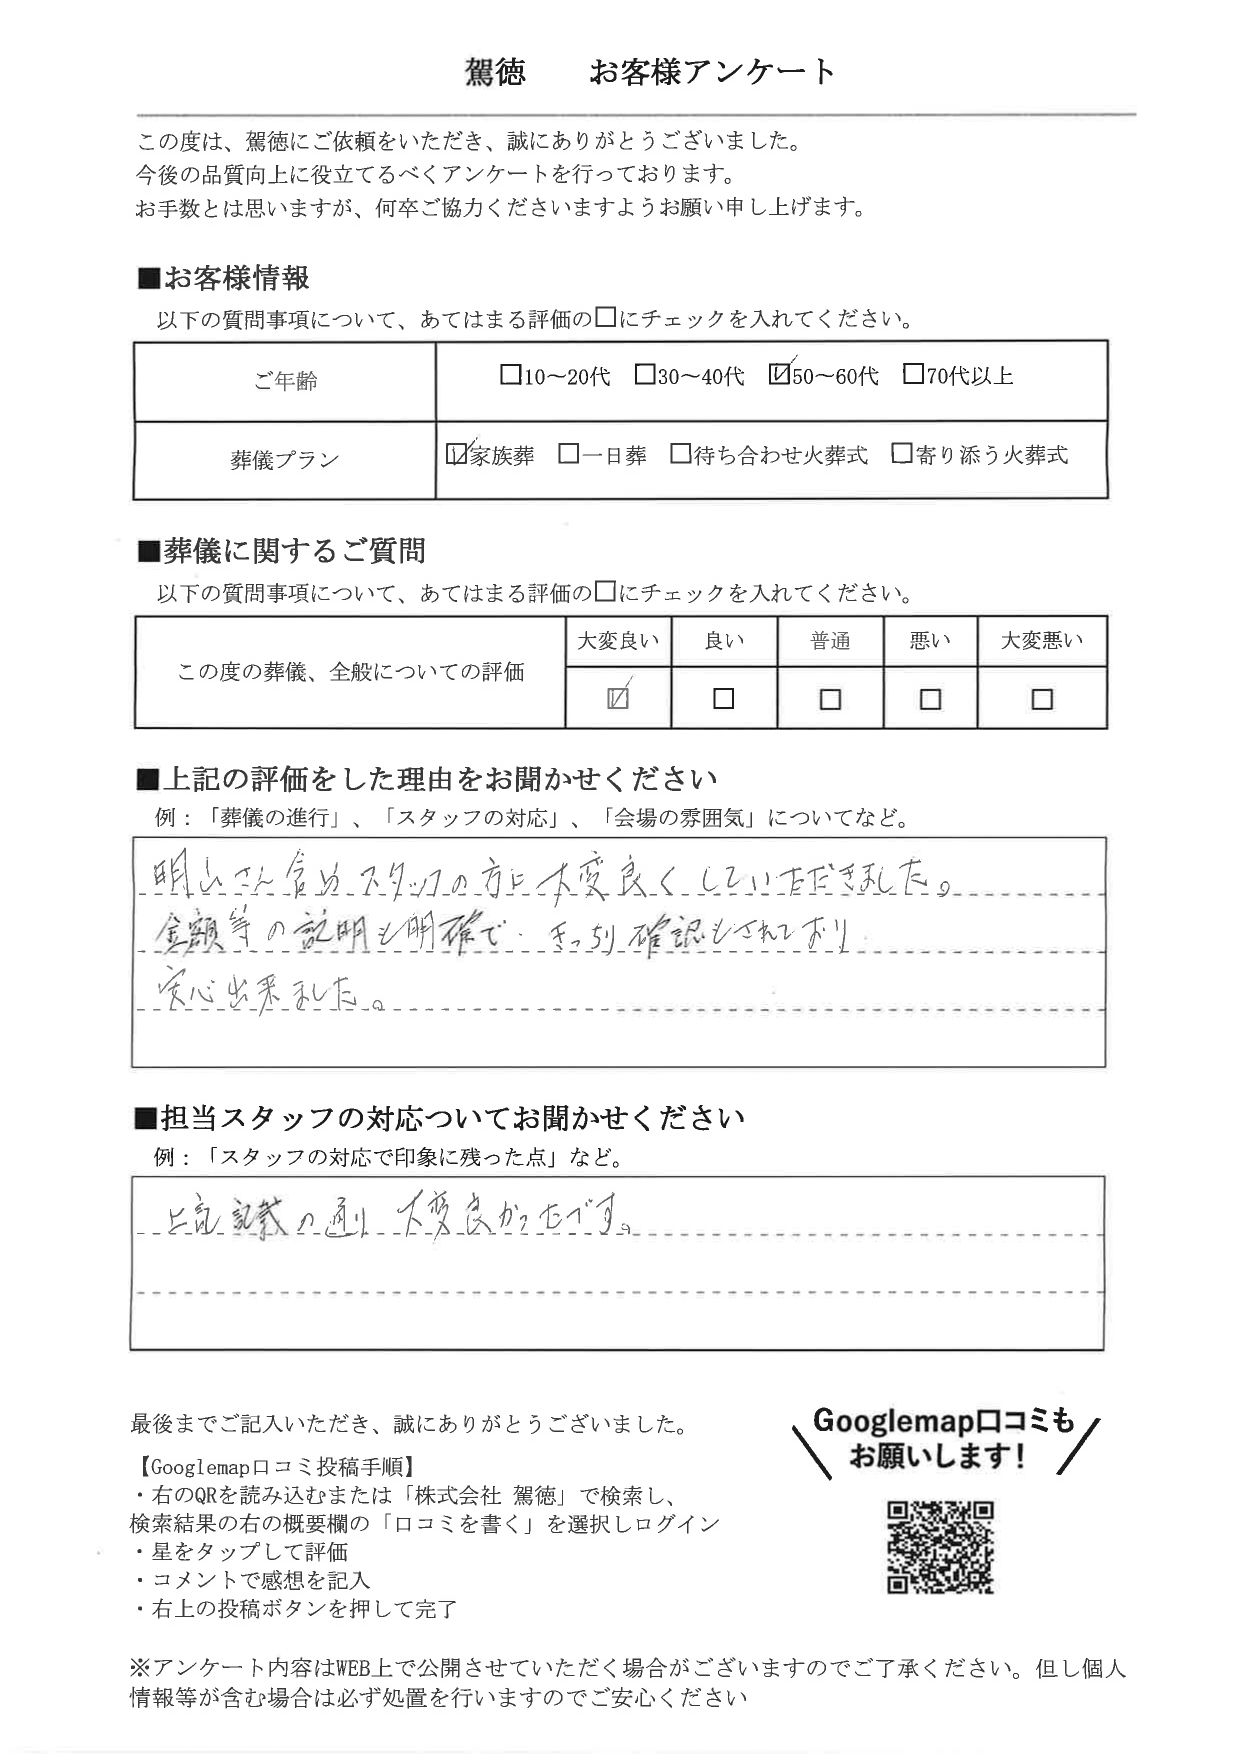 駕徳　　お客様アンケート
この度は、駕徳にご依頼をいただき、誠にありがとうございました。
今後の品質向上に役立てるべくアンケートを行っております。
お手数とは思いますが、何卒ご協力くださいますようお願い申し上げます。
■お客様情報
以下の質問事項について、あてはまる評価の□にチェックを入れてください。
ご年齢　□10～20代　□30～40代　☑50～60代　□70代以上
葬儀プラン　☑家族葬　□一日葬　□待ち合わせ火葬式　□寄り添う火葬式
■葬儀に関するご質問
以下の質問事項について、あてはまる評価の□にチェックを入れてください。
大変良い　良い　普通　悪い　大変悪い
この度の葬儀、全般についての評価　☑　□　□　□　□
■上記の評価をした理由をお聞かせください
例：「葬儀の進行」、「スタッフの対応」、「会場の雰囲気」についてなど。
さん含めスタッフの方に大変良くしていただきました。
金額等の説明も明確で、きっちり確認もされており
安心出来ました。
■担当スタッフの対応ついてお聞かせください
例：「スタッフの対応で印象に残った点」など。
上記記載の通り 大変良かったです。
最後までご記入いただき、誠にありがとうございました。
【Googlemap口コミ投稿手順】
・右のQRを読み込むまたは「株式会社 駕徳」で検索し、
検索結果の右の概要欄の「口コミを書く」を選択しログイン
・星をタップして評価
・コメントで感想を記入
・右上の投稿ボタンを押して完了
Googlemap口コミも
お願いします！
※アンケート内容はWEB上で公開させていただく場合がございますのでご了承ください。但し個人
情報等が含む場合は必ず処置を行いますのでご安心ください